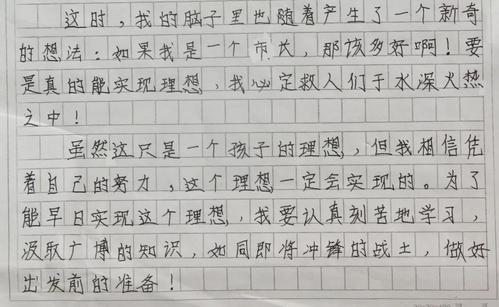 这时，我的脑子里也随着产生了一个新奇
的想法：如果我是一个市长，那该多好啊！要
是真的能实现理想，我必定救人们于水深火热
之中！
虽然这只是一个孩子的理想，但我相信凭
着自己的努力，这个理想一定会实现的。为了
能早日实现这个理想，我要认真刻苦地学习，
汲取广博的知识，如同即将冲锋的战士，做好
出发前的准备！